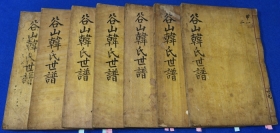 谷山韓氏世譜
谷山韓氏世譜
谷山韓氏世譜
谷山韓氏世譜
谷山韓氏世譜
谷山韓氏世譜
谷山韓氏世譜